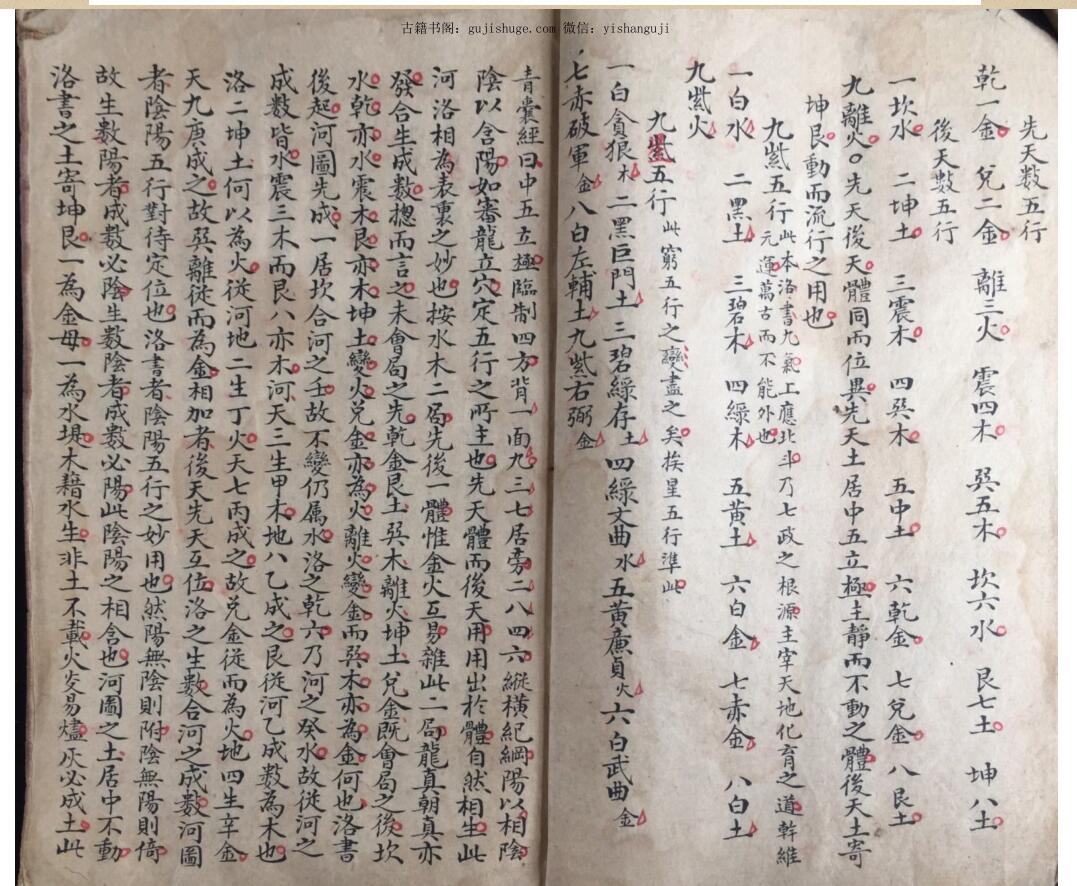 古籍书阁：gujishuge.com 微信：yishanguji
先天数五行
乾一金 兌二金 離三火 震四木 巽五木 坎六水 艮七土 坤八土
後天數五行
一坎水 二坤土 三震木 四巽木 五中土 六乾金 七兌金 八艮土
九離火○先天後天體同而位異先天土居中五立極主静而不動之體後天土寄
坤艮動而流行之用也
九紫五行此本洛書九氣上應北斗乃七政之根源主宰天地化育之道幹維
元運萬古而不能外也
一白水 二黑土 三碧木 四緑木 五黄土 六白金 七赤金 八白土
九紫火
九紫五行此窮五行之變盡之矣挨星五行準此
一白貪狼木 二黑巨門土 三碧緑存土 四緑文曲水 五黄廉貞火 六白武曲金
七赤破軍金 八白左輔土 九紫右弼金
青囊經曰中五立極臨制四方背一面九三七居旁二八四六縱橫紀綱陽以相陰
陰以含陽如審龍立穴定五行之所主也先天體而後天用用出於體自然相生此
河洛相為表裏之妙也按水木二局先後一體惟金火互易雜此一局龍真朝真亦
發合生成數揔而言之未會局之先乾金艮土巽木離火坤土兌金既會局之後坎
水乾亦水震木艮亦木坤土變火兌金亦為火離火變金而巽木亦為金何也洛書
後起河圖先成一居坎合河之壬故不變仍属水洛之乾六乃河之癸水故從河之
成數皆水震三木而艮八亦木河天三生甲木地八乙成之艮從河乙成數為木也
洛二坤土何以為火從河地二生丁火天七丙成之故兌金從而為火地四生辛金
天九庚成之故巽離從而為金相加者後天先天互位洛之生數合河之成數河圖
者陰陽五行對待定位也洛書者陰陽五行之妙用也然陽無陰則附陰無陽則倚
故生數陽者成數必陰生數陰者成數必陽此陰陽之相含也河圖之土居中不動
洛書之土寄坤艮一為金母一為水堤木藉水生非土不載火炎易燼灰必成土此